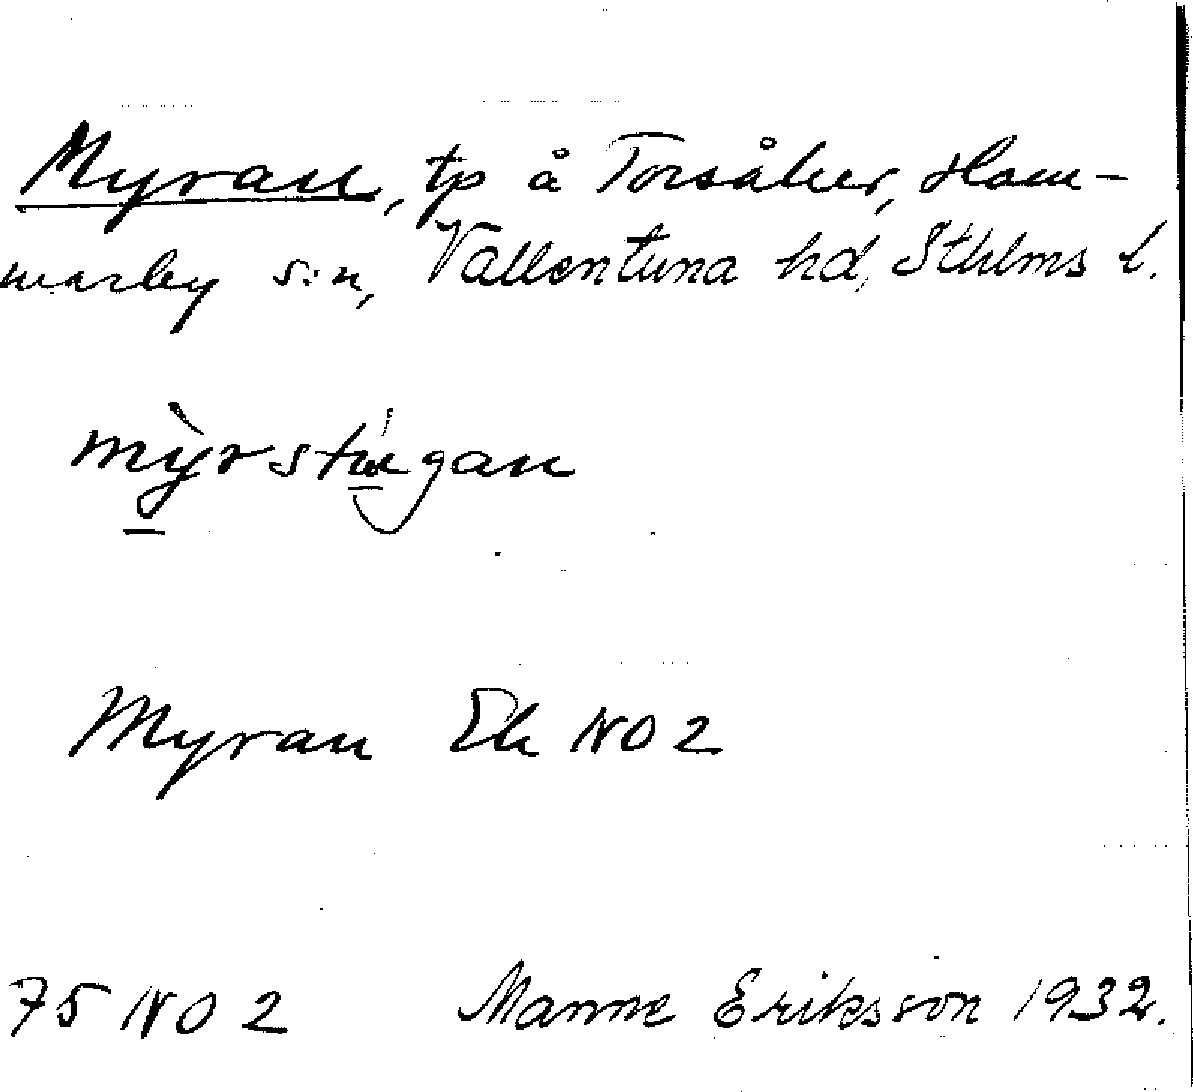 Myran, tp å Torsåker, Ham-
marby s:n, Vallentuna hd, Sthlms l.
mỳrstúgan
Myran Ek NO 2
75 NO 2 Manne Eriksson 1932.